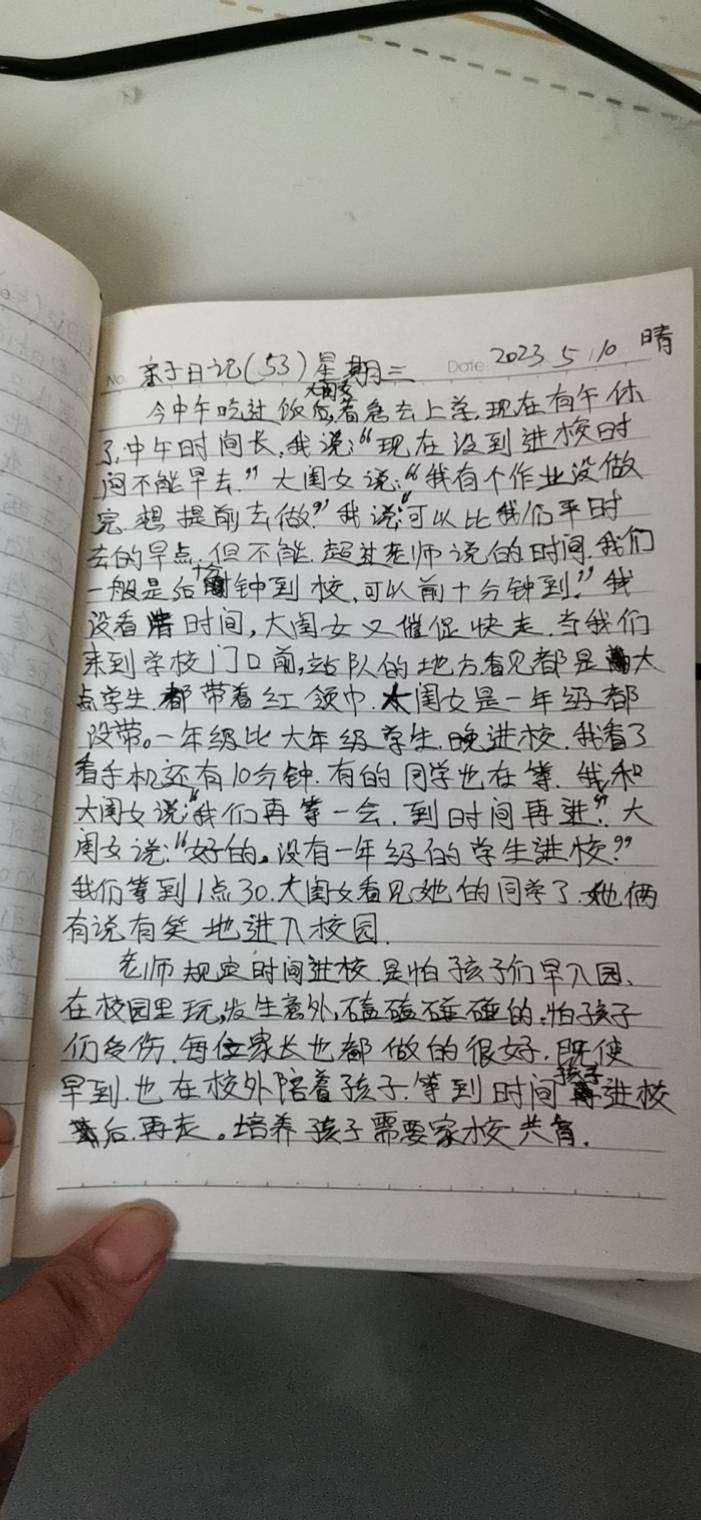 No. 亲子日记(53)星期三 Date 2023 5 10 晴
今中午吃过饭后,大闺女着急去上学,现在有午休
了,中午时间长,我说:“现在没到进校时
间不能早去.”大闺女说:“我有个作业没做
完.想提前去做.”我说:“可以比我们平时
去的早点.但不能.超过老师说的时间.我们
一般是后十分钟到校,可以前十分钟到.”我
没看时间,大闺女又催促快走.当我们
来到学校门口前,站队的地方看见都是大
点学生.都带着红领巾.大闺女是一年级都
没带。一年级比大年级学生.晚进校.我看了
看手机还有10分钟.有的同学也在等.我和
大闺女说:“我们再等一会.到时间再进.”大
闺女说:“好的。没有一年级的学生进校?”
我们等到1点30.大闺女看见她的同学了.她俩
有说有笑地进入校园.
老师规定时间进校是怕孩子们早入园、
在校园里玩,发生意外,磕磕碰碰的.怕孩子
们受伤.每位家长也都做的很好.既使
早到.也在校外陪着孩子.等到时间孩子进校
后.再走。培养孩子需要家校共育.